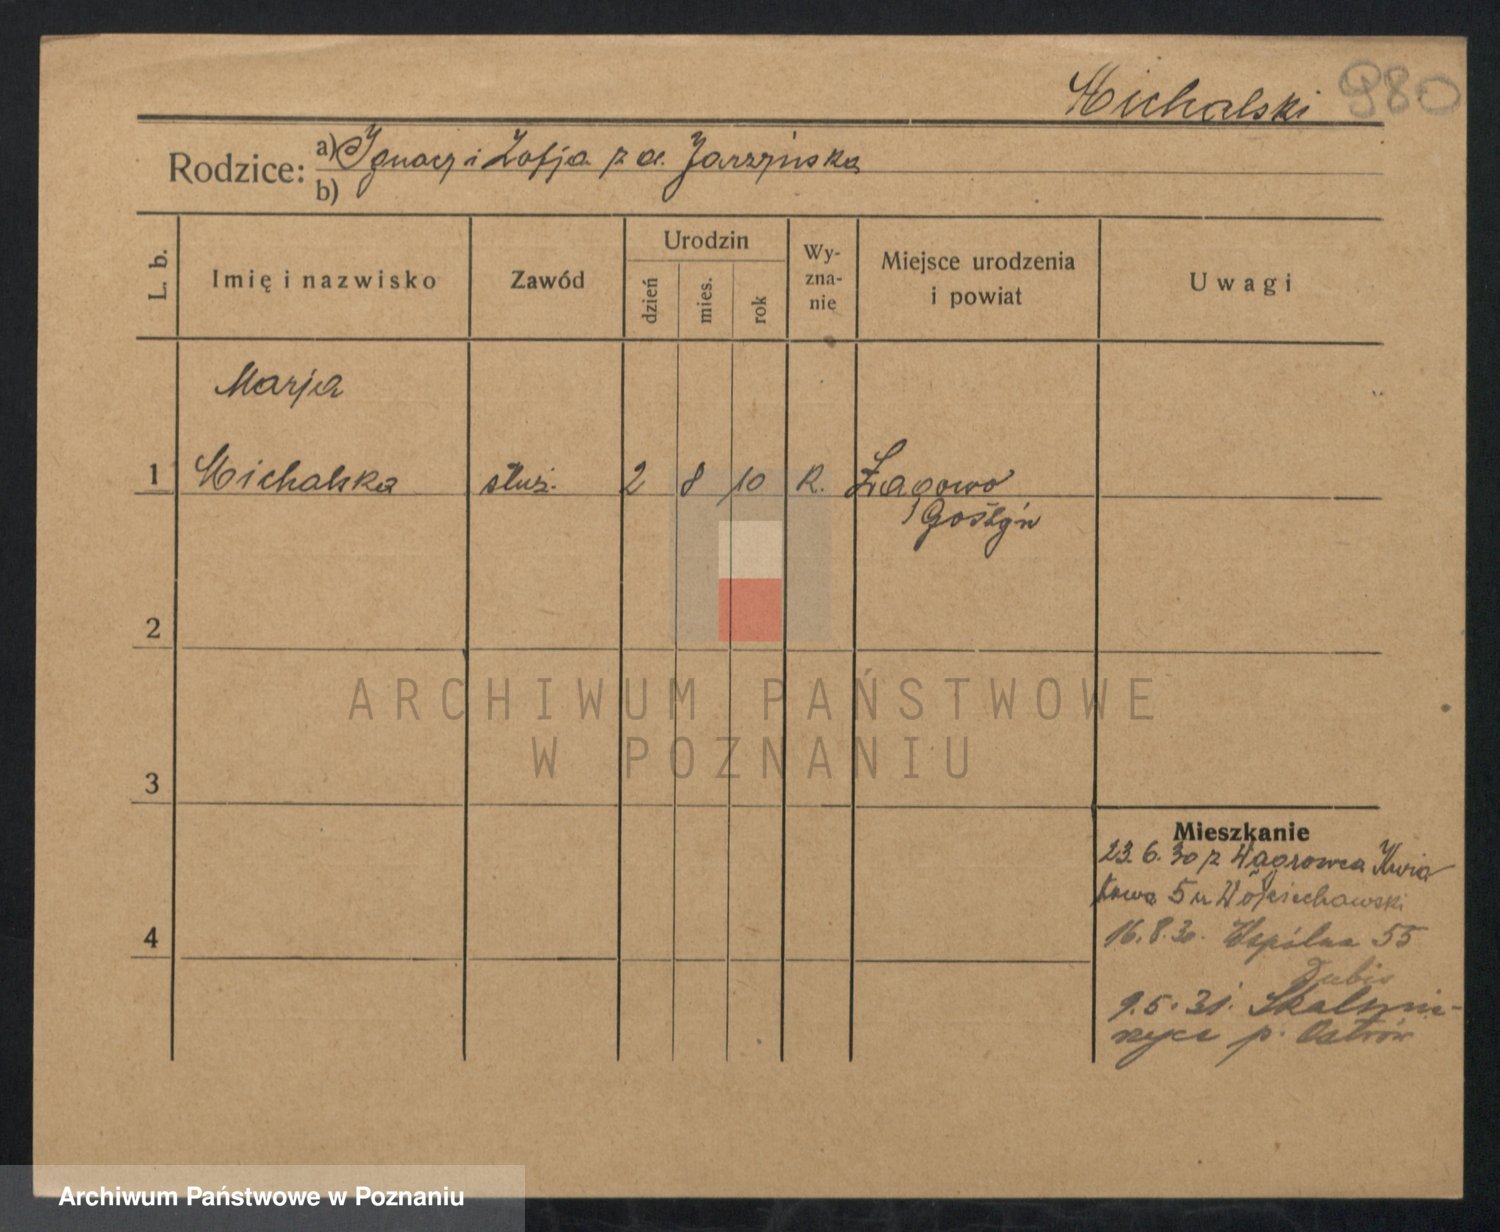 Michalski 980
Rodzice: a) Ignacy i Zofja z d. Jarzyńska
b)
L. b. Imię i nazwisko Zawód Urodzin dzień mies. rok Wy-
zna-
nie Miejsce urodzenia
i powiat Uwagi
Marja
1 Michalska służ. 2 8 10 R.
Gostyń
2
3
4
Mieszkanie
23. 6. 30 z Wągrowca Kwia
towa 5 u Wojciechowski
16. 8. 30. Wspólna 55
Dubis
9. 5. 31.
p. Ostrów
ARCHIWUM PAŃSTWOWE
W POZNANIU
Archiwum Państwowe w Poznaniu